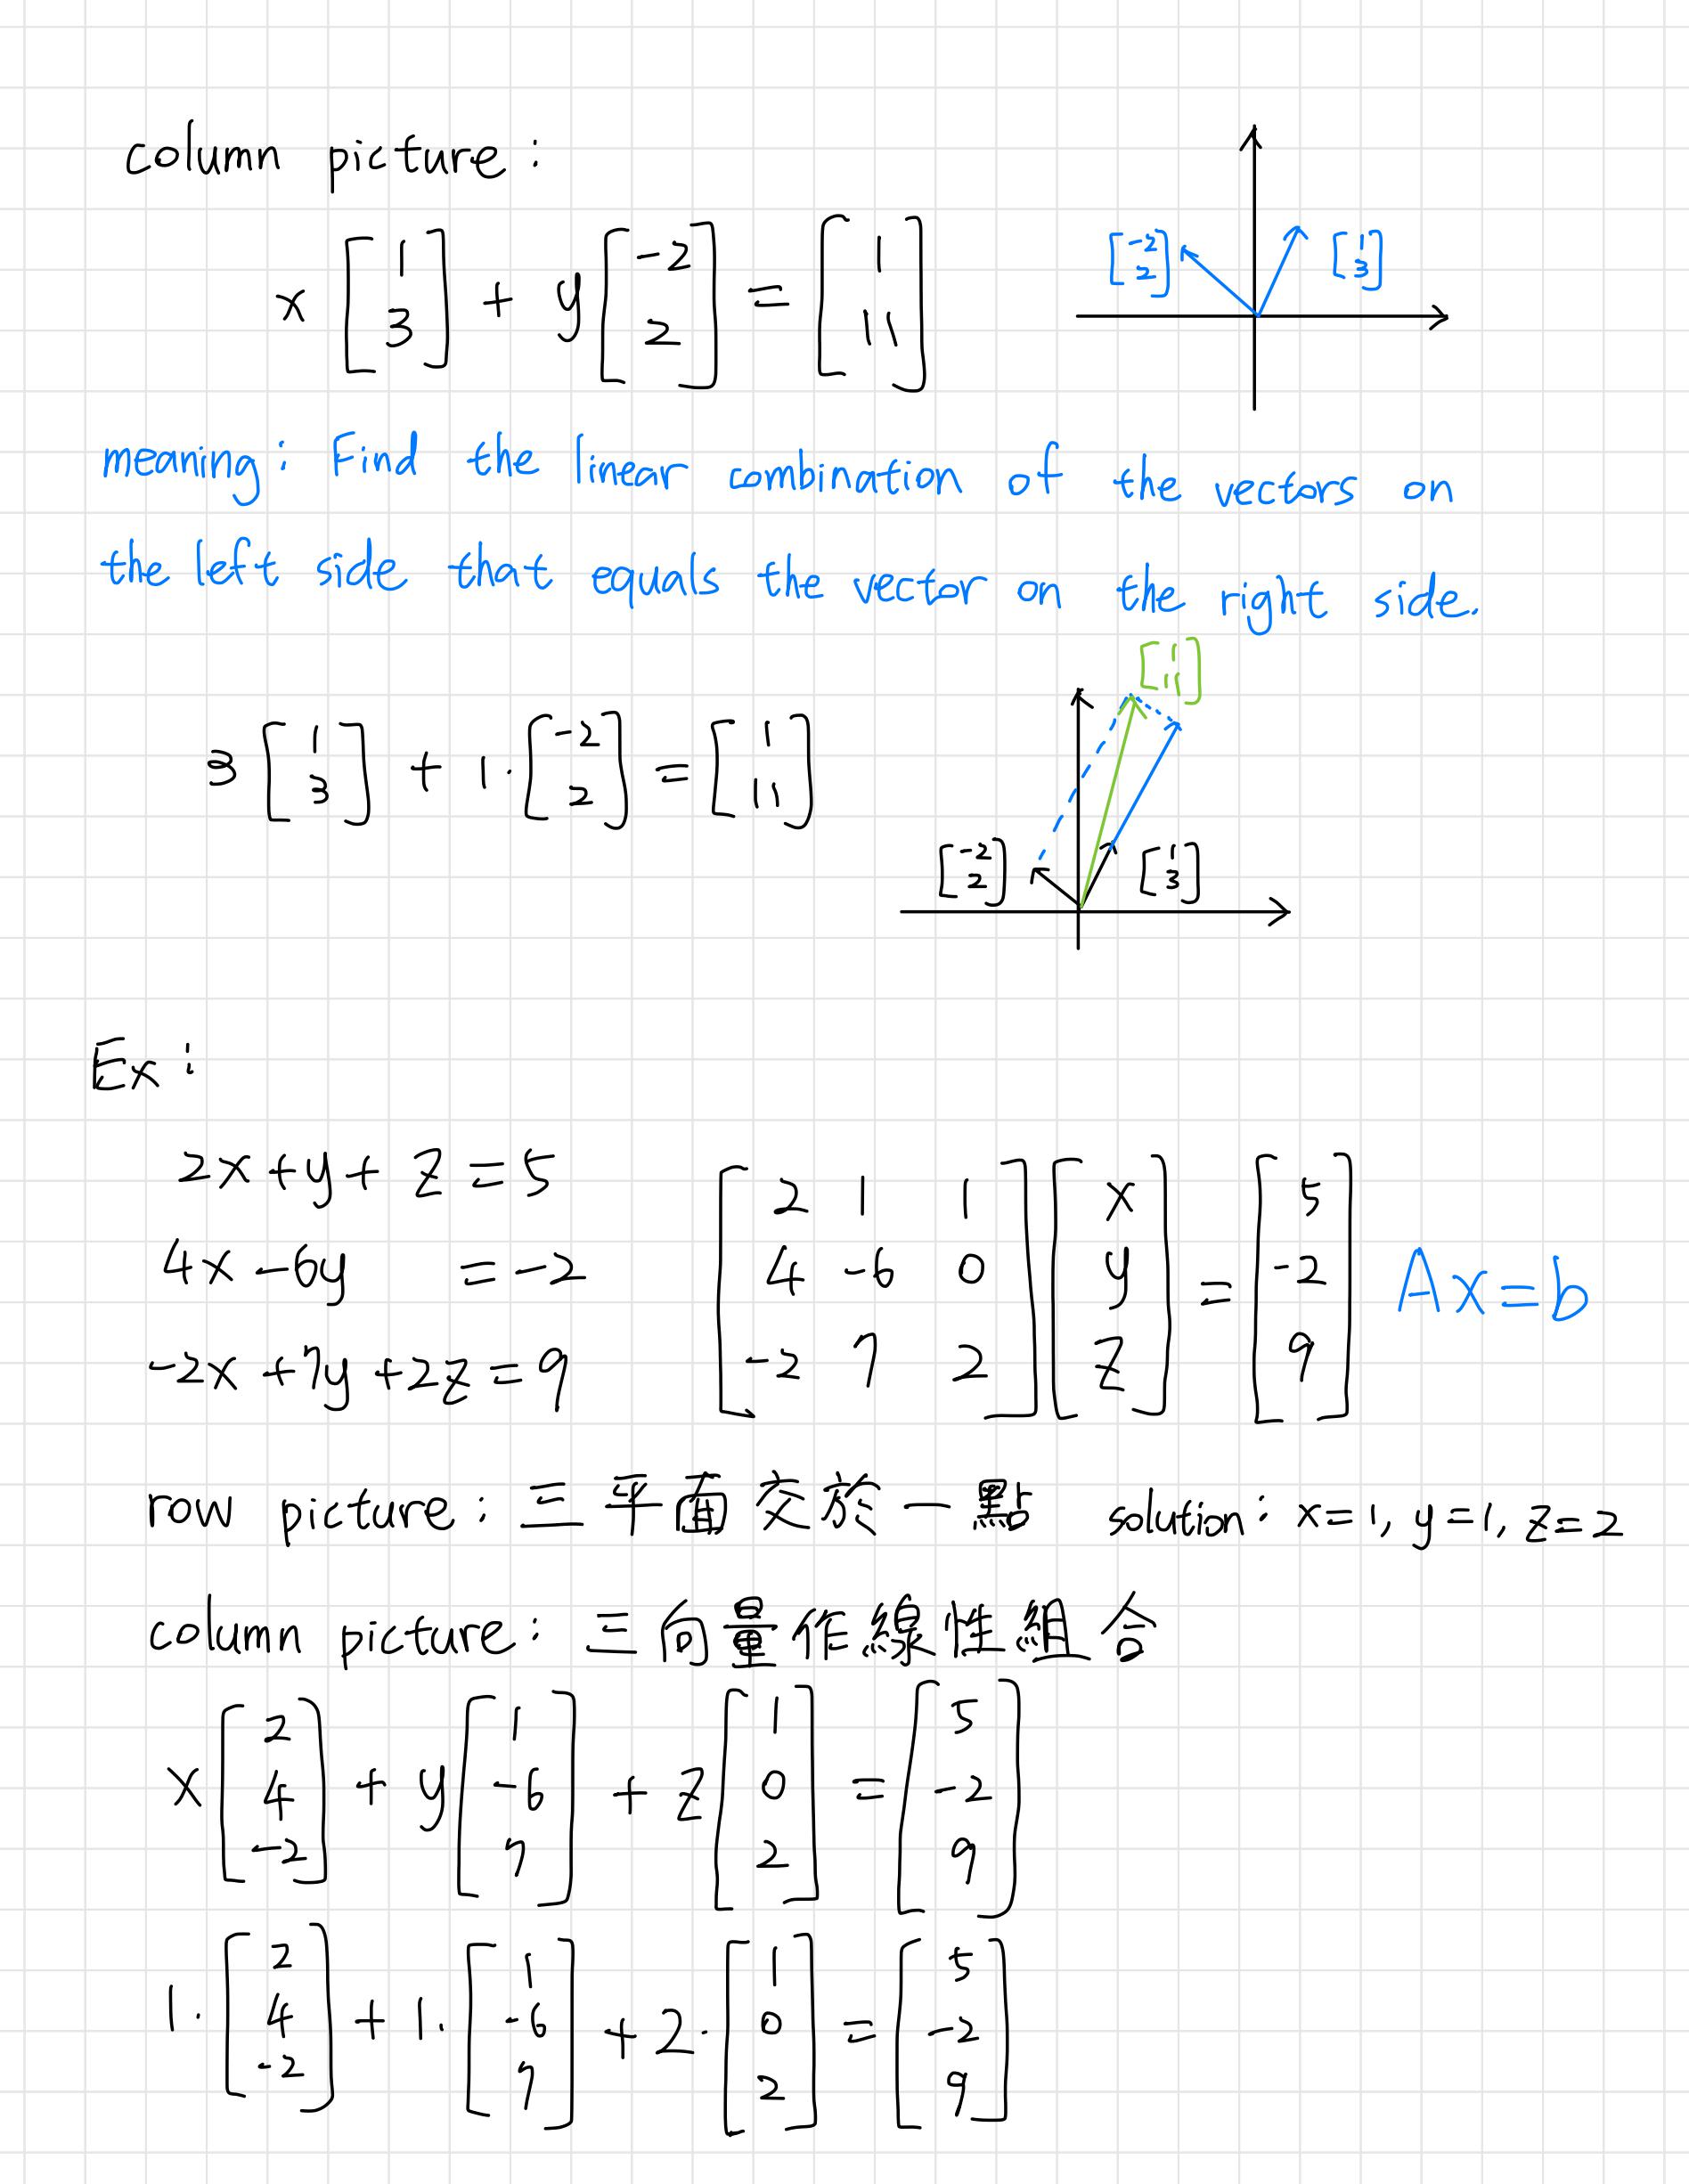 column picture:
x [1 3] + y [-2 2] = [1 11]
[-2 2] [1 3]
meaning: Find the linear combination of the vectors on
the left side that equals the vector on the right side.
3 [1 3] + 1· [-2 2] = [1 11]
[1 11]
[-2 2] [1 3]
Ex:
2x+y+z=5
4x-6y =-2
-2x+7y+2z=9
[2 1 1
4 -6 0
-2 7 2] [x y z] = [5 -2 9] Ax=b
row picture: 三平面交於一點 solution: x=1, y=1, z=2
column picture: 三向量作線性組合
x [2 4 -2] + y [1 -6 7] + z [1 0 2] = [5 -2 9]
1· [2 4 -2] + 1· [1 -6 7] + 2· [1 0 2] = [5 -2 9]